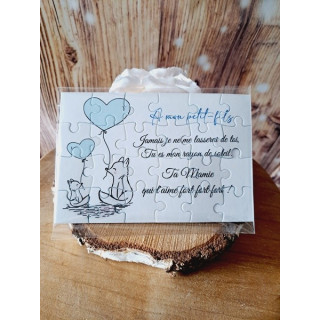 À mon petit-fils
Jamais je ne me lasserai de toi,
Tu es mon rayon de soleil.
Ta Mamie
qui t'aime fort fort fort !